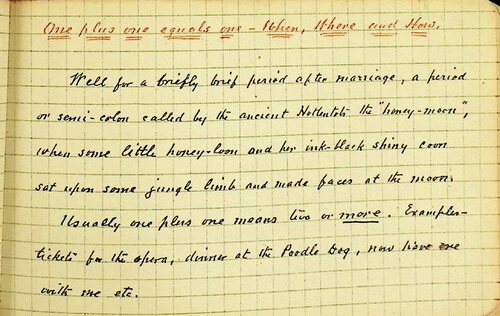 One plus one equals one - When, Where and How.
Well for a briefly brief period after marriage, a period
or semi-colon called by the ancient Hottentots the "honey-moon",
when some little honey-loon and her ink-black shiny coon
sat upon some jungle limb and made faces at the moon.
Usually one plus one means two or more. Examples-
tickets for the opera, dinner at the Poodle Dog, now have one
with me etc.